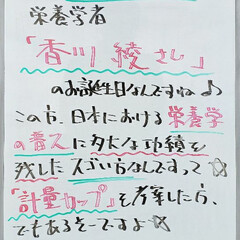 栄養学者
「香川 綾さん」
のお誕生日なんですね♪
この方、日本における栄養学
の普及に多大な功績を
残したスゴい方なんですって☆
「計量カップ」を考案した方、
でもあるそーですよ☆